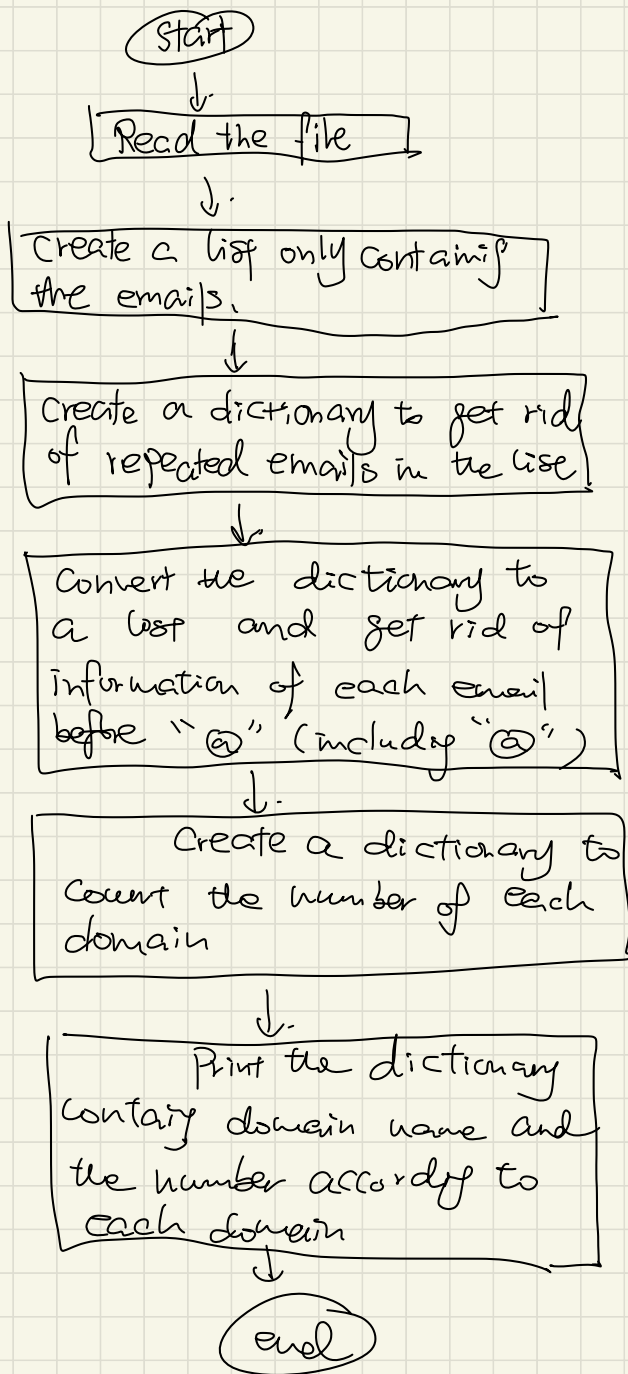 Start
Read the file
Create a list only containig
the emails.
Create a dictionary to get rid
of repeated emails in the list
Convert the dictionary to
a list and get rid of
information of each email
before "@" (includig "@")
Create a dictionary to
count the number of each
domain
Print the dictionary
containg domain name and
the number accordig to
each domain
end